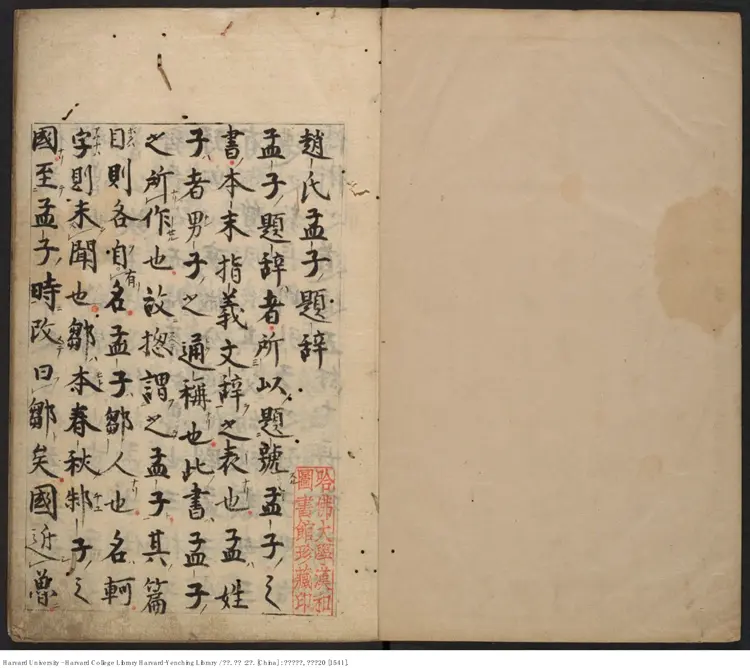 趙氏孟子題辞
孟子題辞者所以題號孟子之
書本末指義文辞之表也孟姓
子者男子之通稱也此書孟子
之所作也故揔謂之孟子其篇
目則各自有名孟子鄒人也名軻
字則未聞也鄒本春秋邾子之
國至孟子時改曰鄒矣國近魯
哈佛大學漢和
圖書館珍藏印
Harvard University - Harvard College Library Harvard-Yenching Library / ??. ?? :2?. [China] : ?????, ???20 [1541].